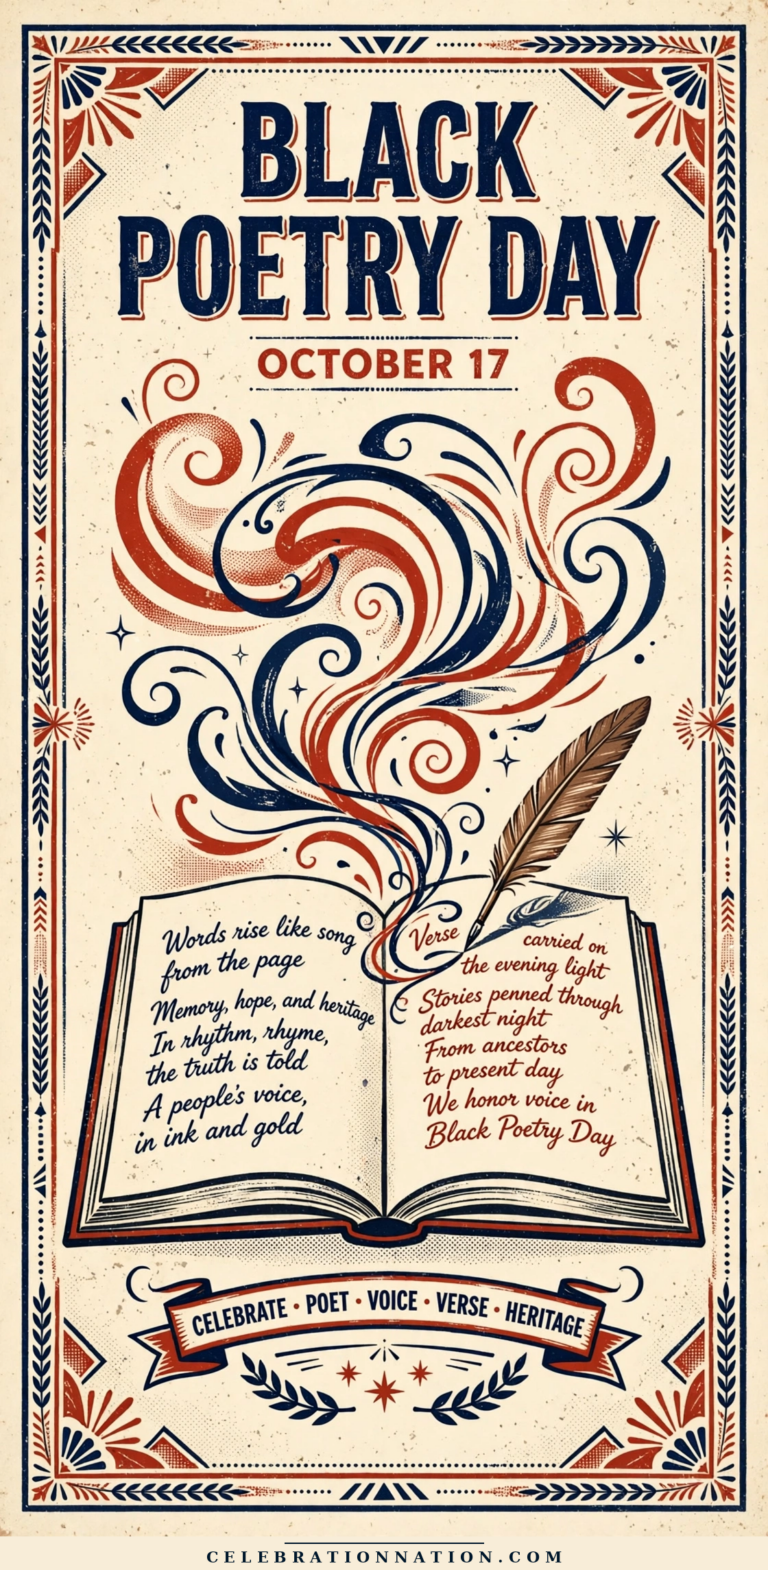 BLACK
POETRY DAY
OCTOBER 17
Words rise like song
from the page
Memory, hope, and heritage
In rhythm, rhyme,
the truth is told
A people's voice,
in ink and gold
Verse carried on
the evening light
Stories penned through
darkest night
From ancestors
to present day
We honor voice in
Black Poetry Day
CELEBRATE • POET • VOICE • VERSE • HERITAGE
CELEBRATIONNATION.COM